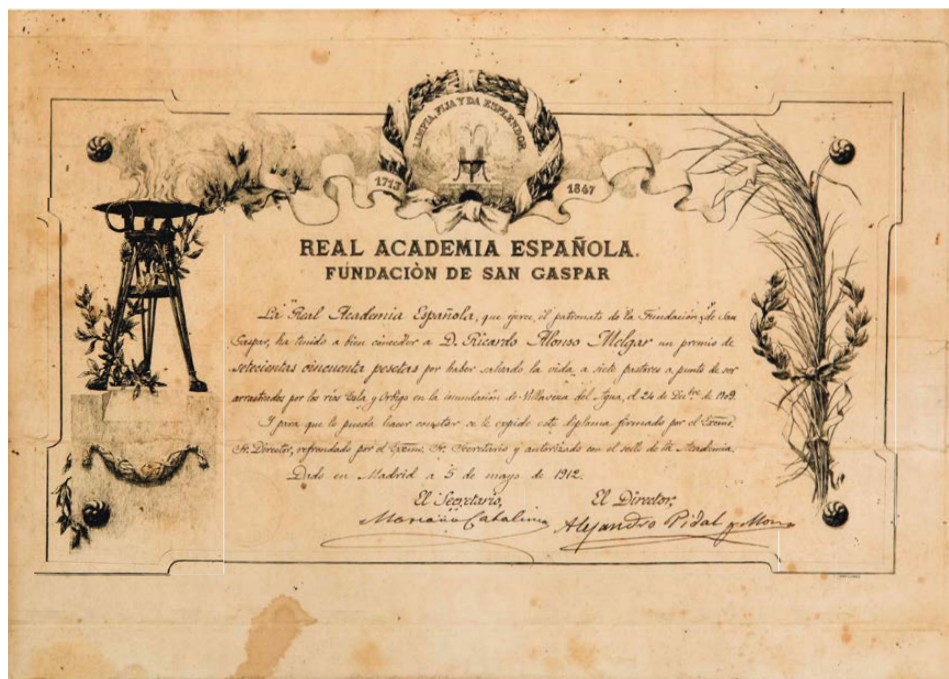 LIMPIA, FIJA Y DA ESPLENDOR
1713 1847
REAL ACADEMIA ESPAÑOLA.
FUNDACIÓN DE SAN GASPAR
La Real Academia Española, que ejerce el patronato de la Fundación de San
Gaspar, ha tenido a bien conceder a D. Ricardo Alonso Melgar un premio de
setecientas cincuenta pesetas por haber salvado la vida a siete pastores a punto de ser
arrastrados por los ríos Esla y Órbigo en la inundación de Villaveza del Agua, el 24 de Dicbre de 1909.
Y para que lo pueda hacer constar se le expide este diploma firmado por el Excmo.
Sr. Director, refrendado por el Excmo. Sr. Secretario y autorizado con el sello de la Academia.
Dado en Madrid a 5 de mayo de 1912.
El Secretario, El Director,
Mariano Catalina Alejandro Pidal y Mon